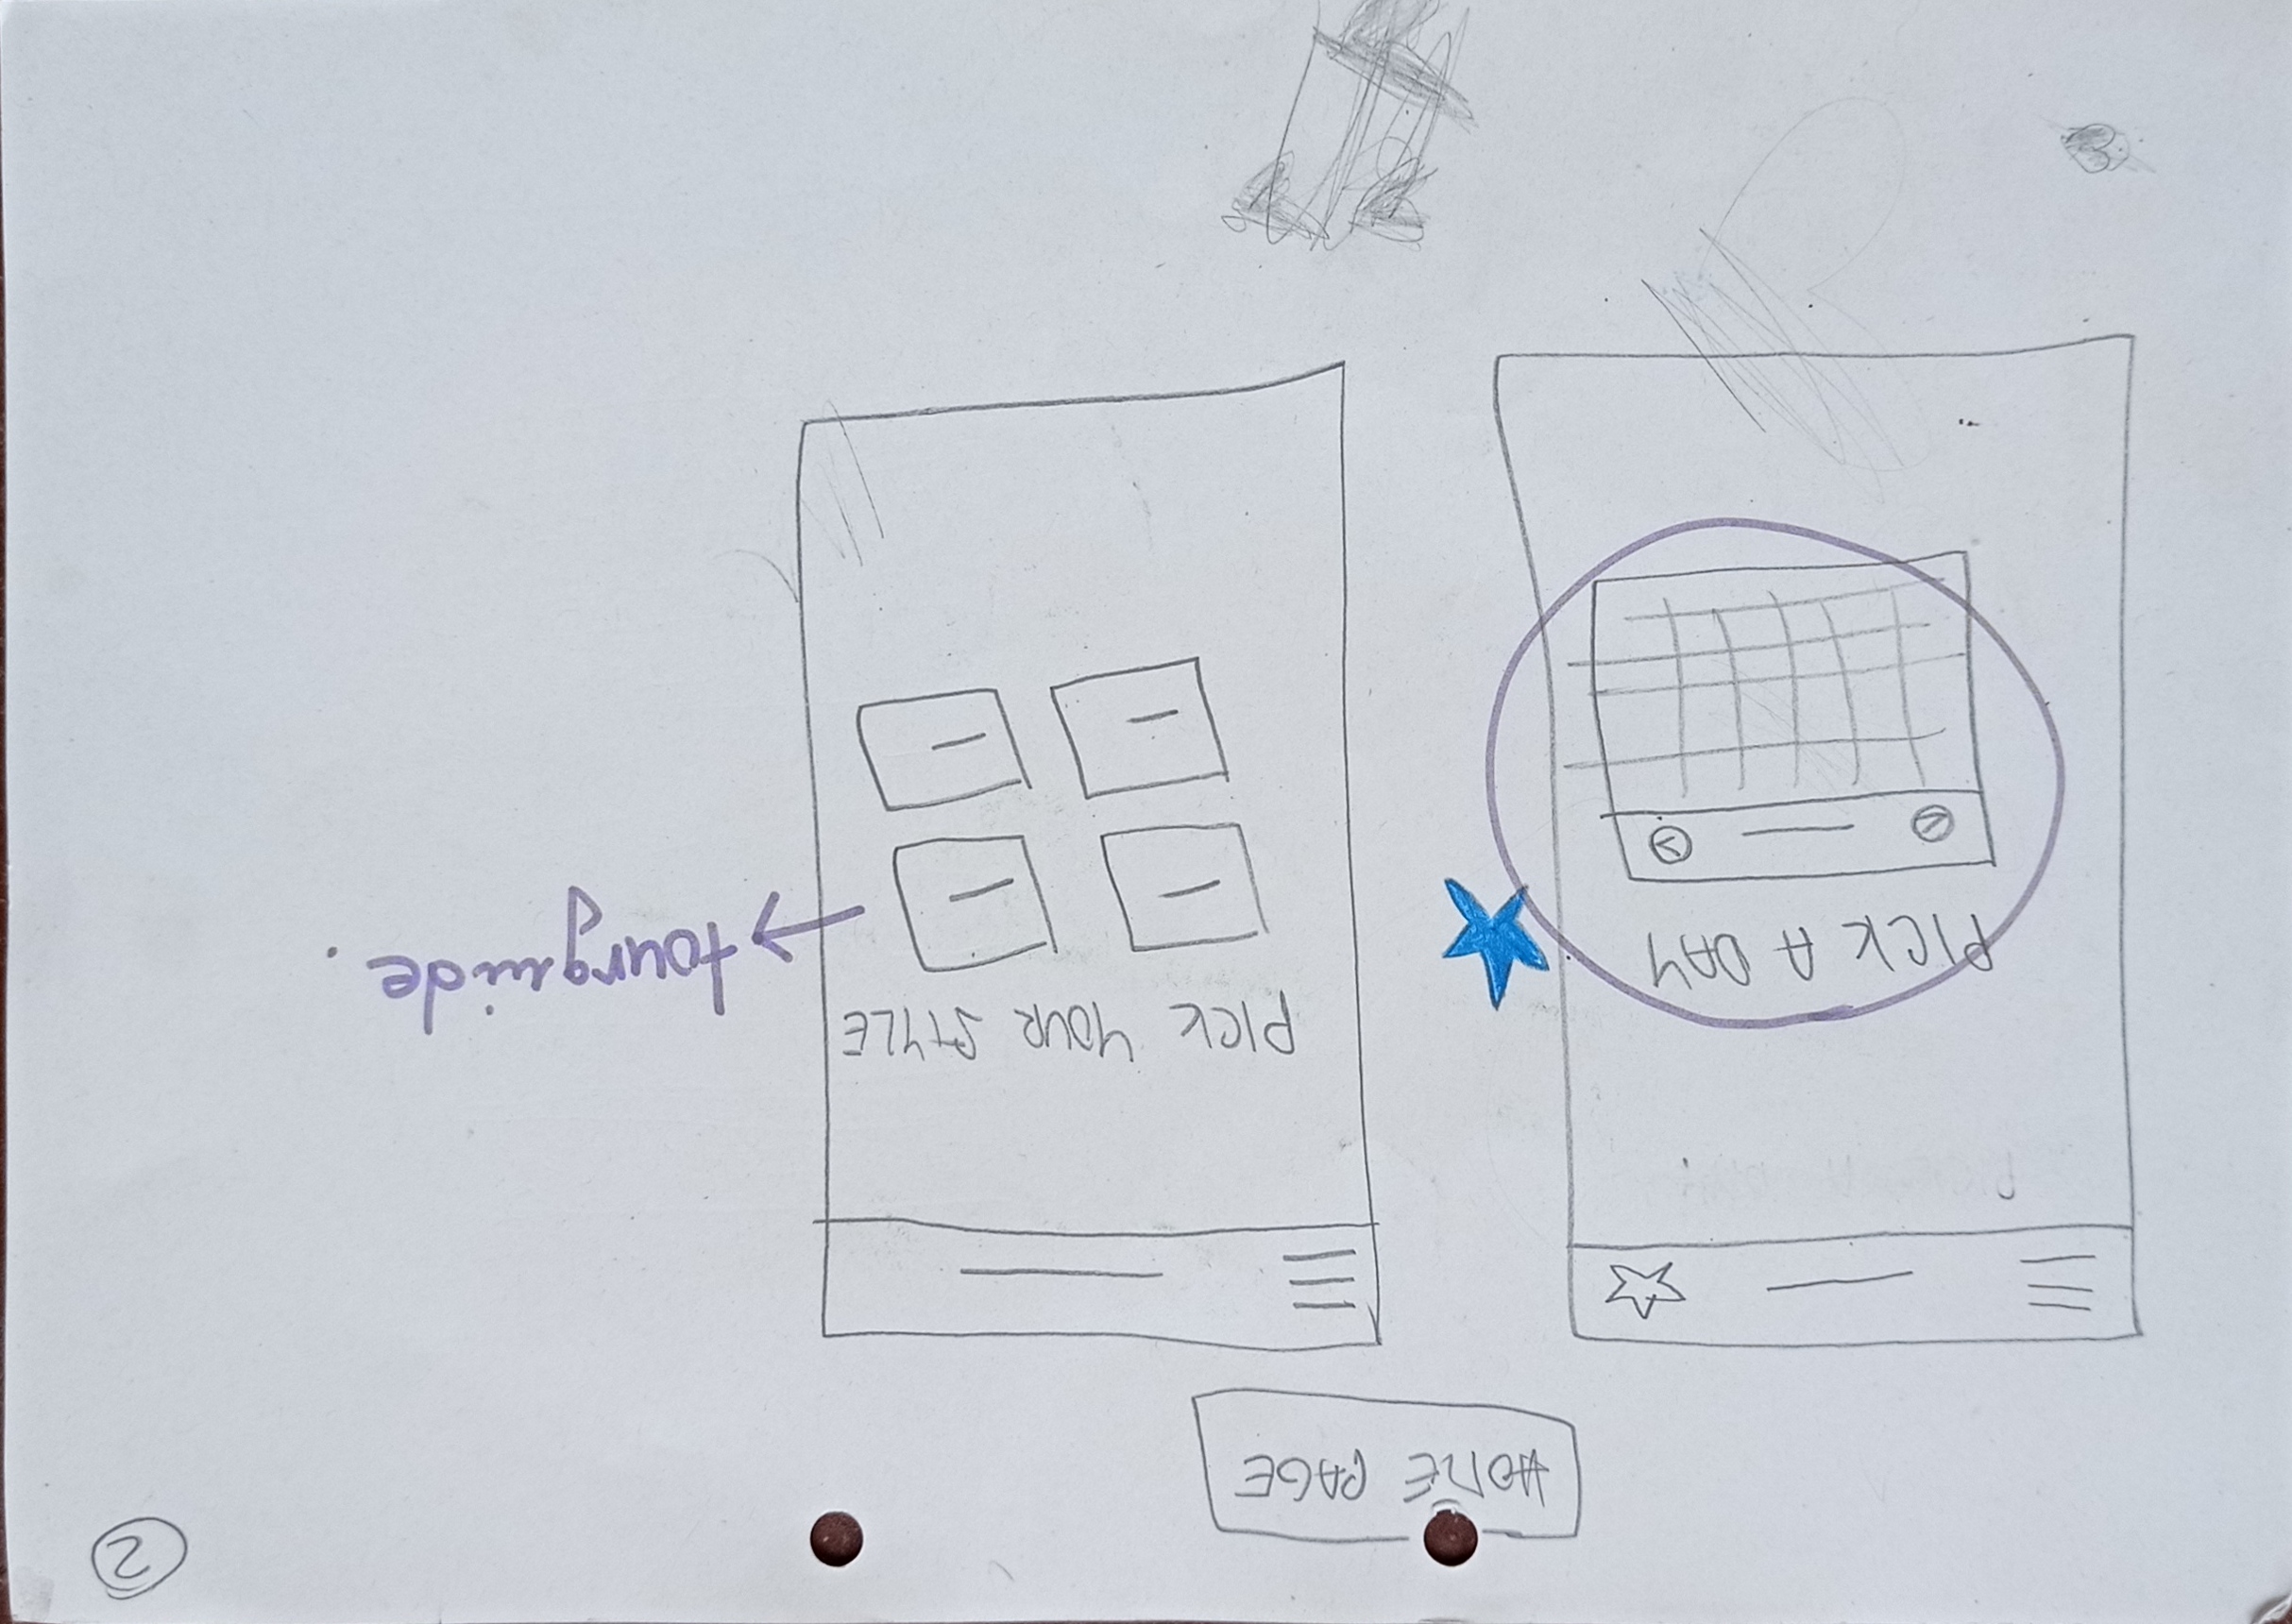 2
HOME PAGE
PICK A DAY
PICK YOUR STYLE
tourguide.